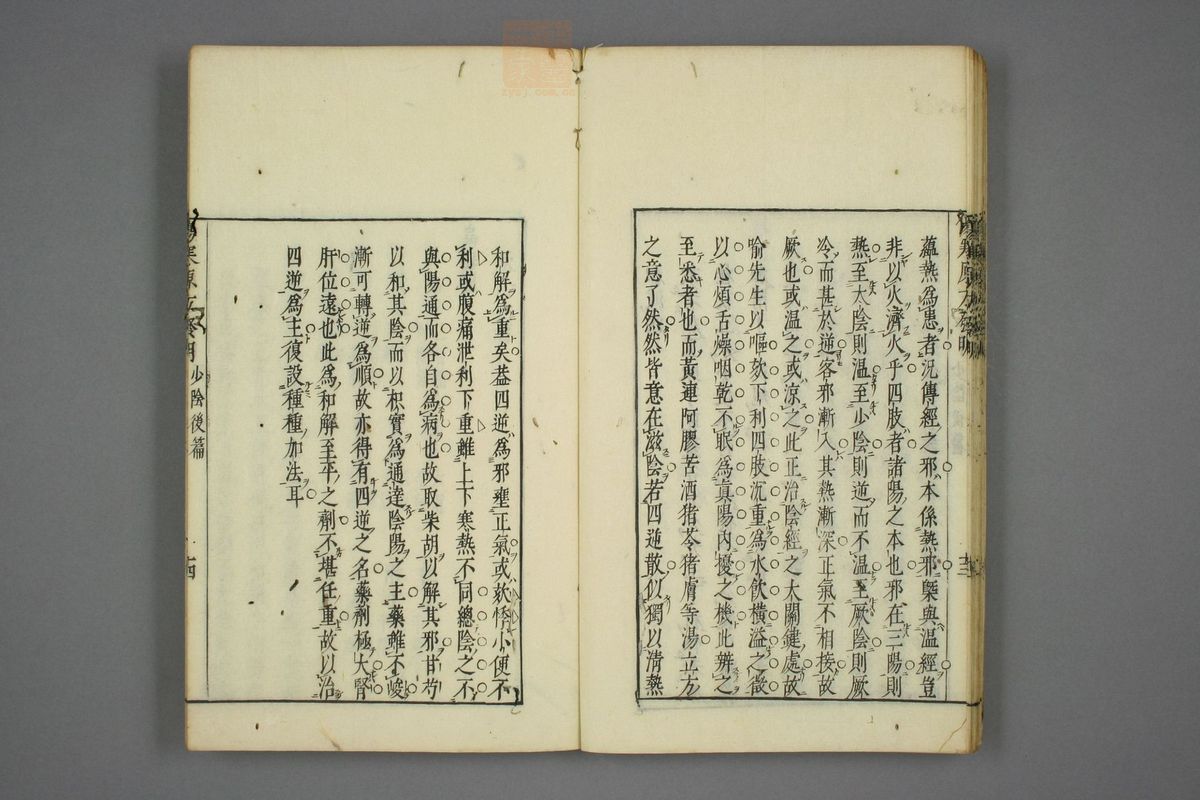 蘊熱爲患者況傳經之邪本係熱邪槩與温經豈
非以火濟火乎四肢者諸陽之本也邪在三陽則
熱至太陰則温至少陰則逆而不温至厥陰則厥
冷而甚於逆客邪漸入其熱漸深正氣不相接故
厥也或温之或涼之此正治陰經之大關鍵處故
喻先生以嘔欬下利四肢沉重爲水飲橫溢之徵
以心煩舌燥咽乾不眠爲眞陽内擾之機此辨之
至悉者也而黃連阿膠苦酒猪苓猪膚等湯立方
之意了然然皆意在滋陰若四逆散似獨以清熱
和解爲重矣葢四逆爲邪壅正氣或欬悸小便不
利或腹痛泄利下重雖上下寒熱不同總陰之不
與陽通而各自爲病也故取柴胡以解其邪甘芍
以和其陰而以枳實爲通達陰陽之主藥雖不峻
漸可轉逆爲順故亦得有四逆之名藥劑極大腎
肝位遠也此爲和解至平之劑不堪任重故以治
四逆爲主復設種種加法耳
少陰後篇
四
zysj.com.cn